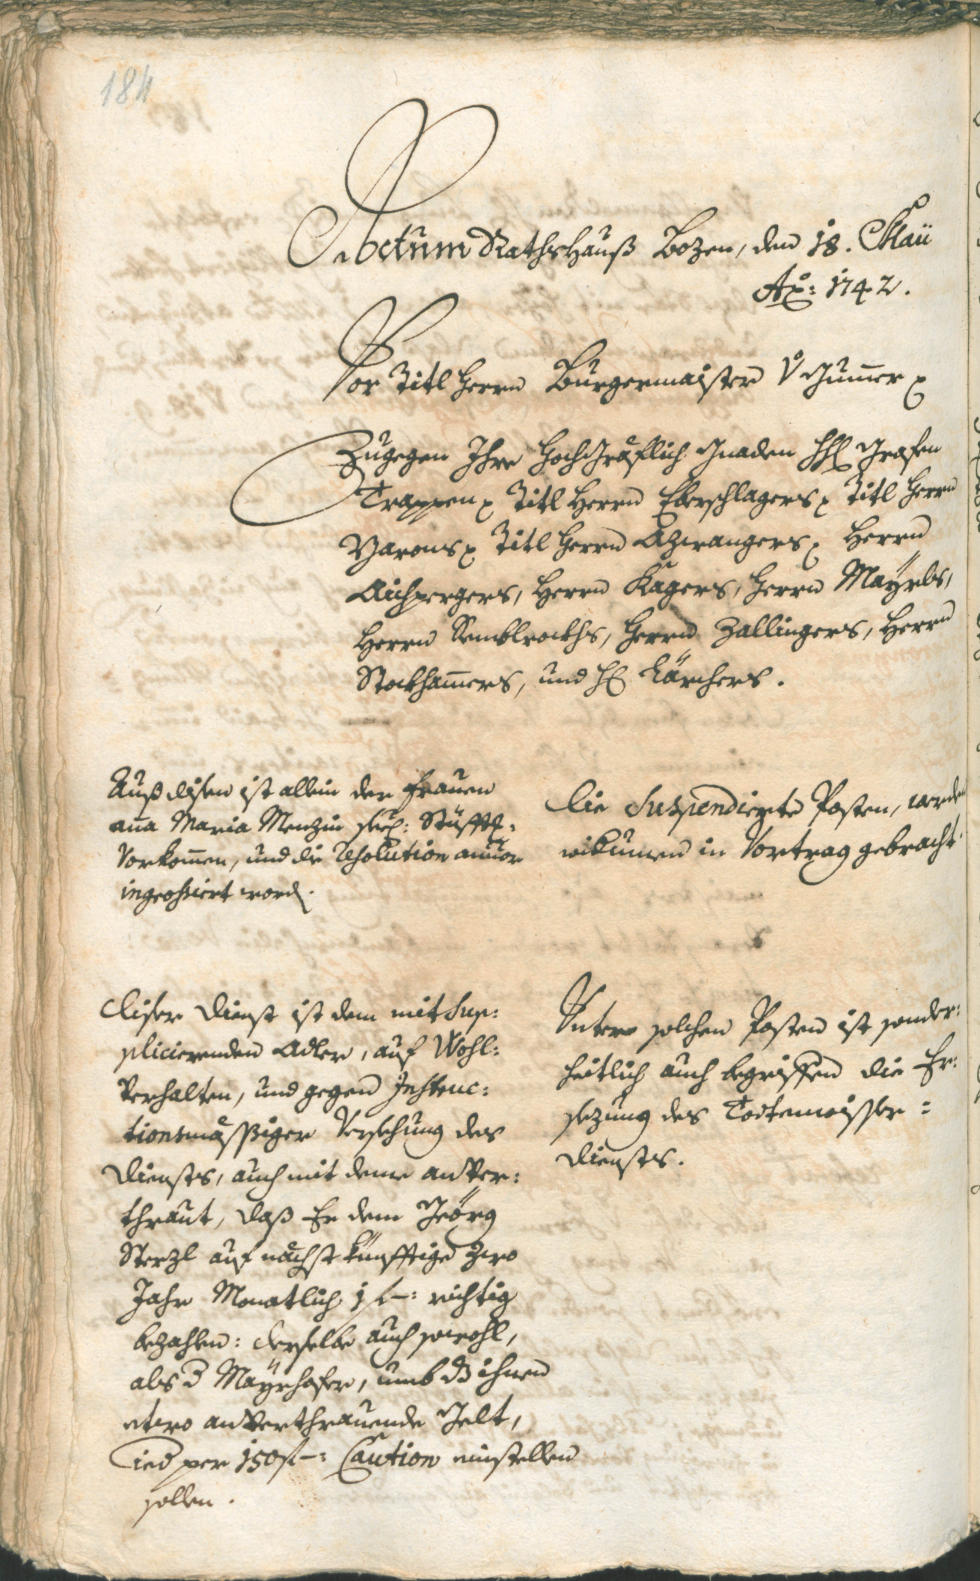 184
Actum Rathshauß Bozen, den 18. Maii
Ao: 1742.
Vor Titl Herrn Burgermaister V Gumer
Zugegen Ihro Hochgräflich Gnaden Grafen
Trappen Titl Herrn Eberschlagers Titl Herrn
Titl Herrn Azwangers Herrn
Aichpergers, Herrn Kagers, Herrn Mayrls,
Herrn Semblrockhs, Herrn Zallingers, Herrn
Stockhamers, und H Kärchers.
Auß disen ist allein der Frauen
Anna Maria Menzin
Vorkomen, und die Resolution
ingrossiert word.
Die Suspendierte Posten, werden
widerumen in Vortrag gebracht
Diser Dienst ist dem mit Sup:
plicierenden Adler, auf Wohl:
Verhalten, und gegen Instruc:
tionsmässiger Versehung des
Diensts, auch mit deme anver:
thraut, daß Er dem Geörg
Sterzl auf nächst künfftige zwo
Jahr Monatlich 1 f –: richtig
bezahlen: derselbe auch sowohl,
als d Mayrhofer, umb dz ihnen
etwo anverthrauende Gelt,
ied per 150 f –: Caution einstellen
sollen.
Unter solchen Posten ist sonder:
heitlich auch begriffen die Er:
sezung des Todtenvisier=
Diensts.